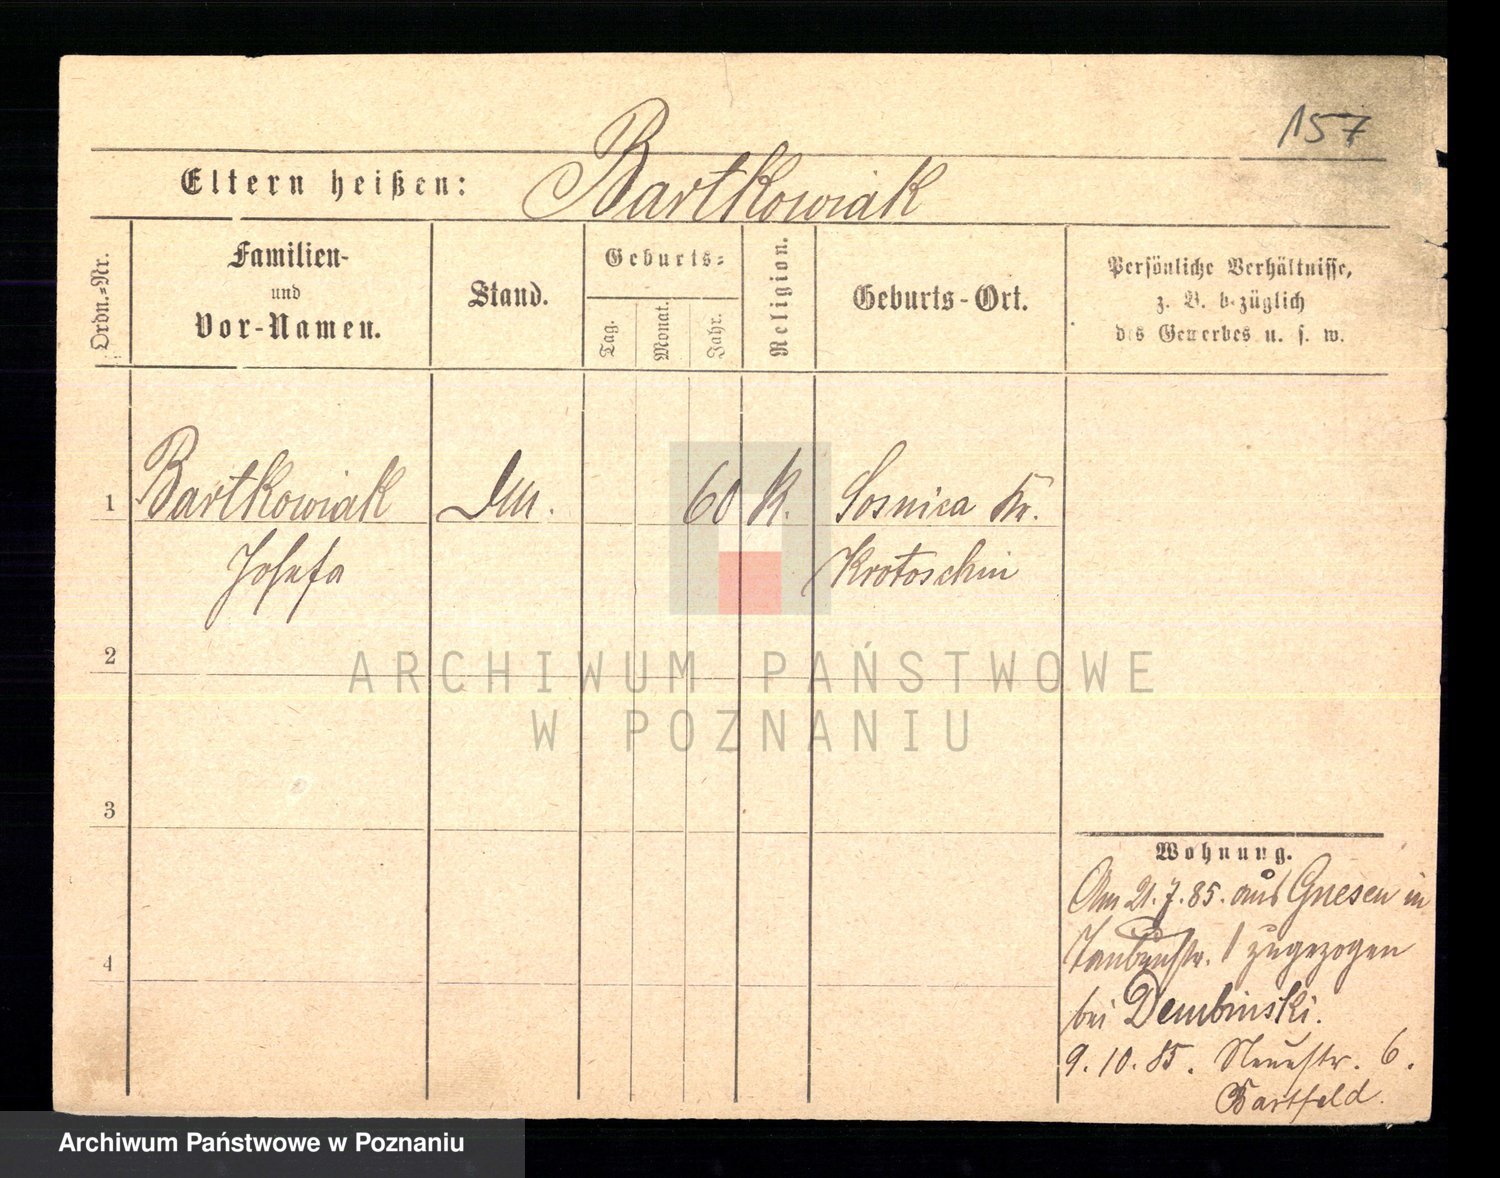 157
Eltern heißen: Bartkowiak
Ordn.=Nr.
Familien-
und
Vor-Namen.
Stand.
Geburts=
Tag.
Monat.
Jahr.
Religion.
Geburts-Ort.
Persönliche Verhältnisse,
z. B. bezüglich
des Gewerbes u. s. w.
1 Bartkowiak 60 K. Sosnica Kr.
Josefa Krotoschin
2
ARCHIWUM PAŃSTWOWE
W POZNANIU
3
4
Wohnung.
Am 21.7.85. aus Gnesen in
Taubenstr. 1 zugezogen
bei Dembinski.
9.10.85. Neuestr. 6.
Bartfeld.
Archiwum Państwowe w Poznaniu